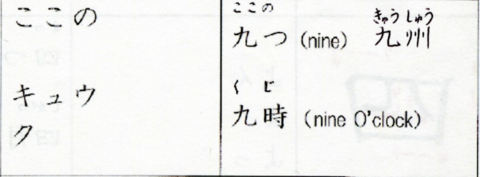 ここの
キュウ
ク
ここの きゅうしゅう
九つ (nine) 九州
くじ
九時 (nine O'clock)